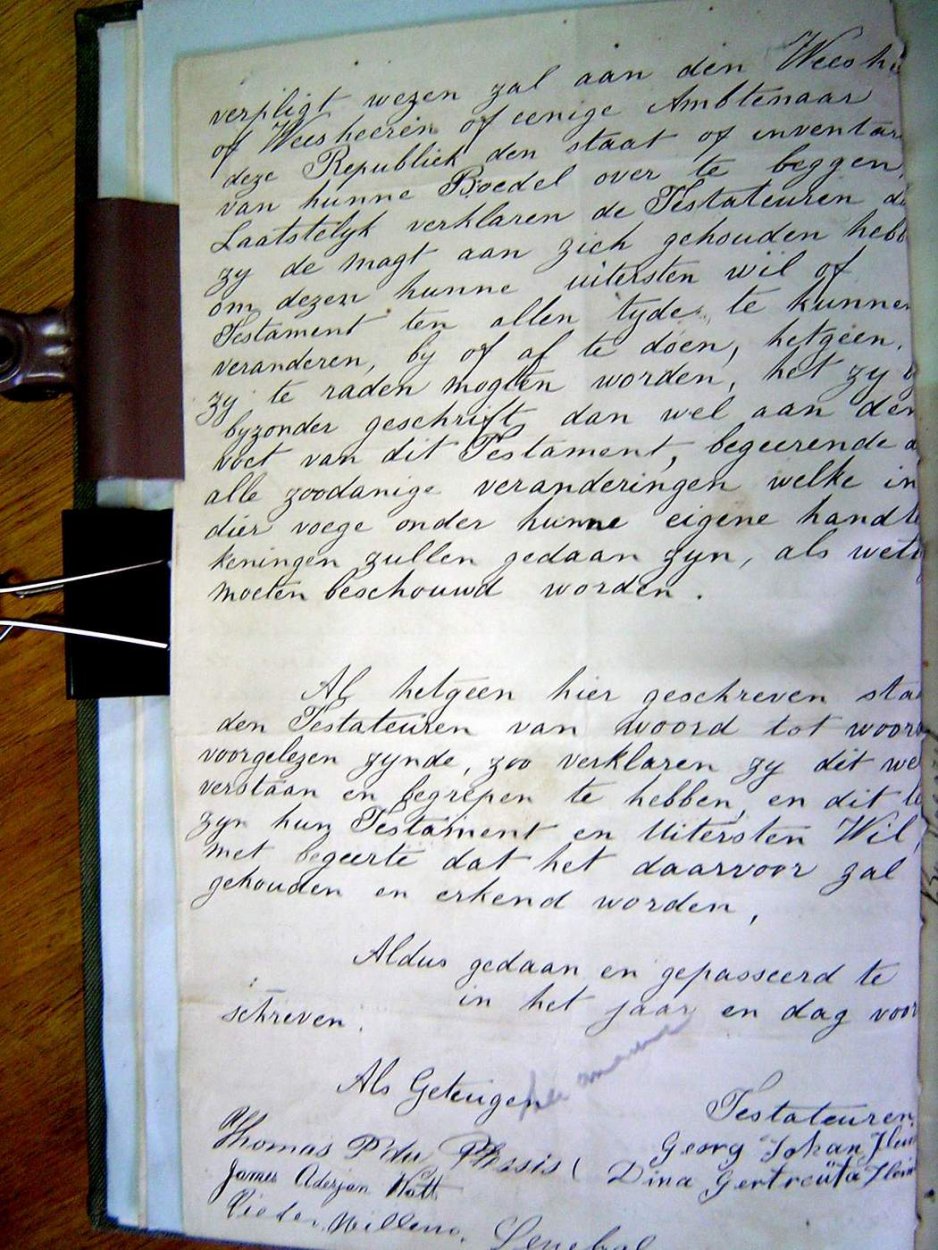 verpligt wezen zal aan den Weesh
of Weesheeren of eenige Ambtenaar
deze Republiek den staat of inventar
van hunne Boedel over te leggen,
Laatstelyk verklaren de Testateuren d
zy de magt aan zich gehouden hebb
om dezen hunne uitersten wil of
Testament ten allen tyde te kunnen
veranderen, by of af te doen, hetgeen
zy te raden mogten worden, het zy
byzonder geschrift, dan wel aan den
voet van dit Testament, begeerende
alle zoodanige veranderingen welke in
dier voege onder hunne eigene handte
keningen zullen gedaan zyn, als wett
moeten beschouwd worden.
Al hetgeen hier geschreven staa
den Testateuren van woord tot woord
voorgelezen zynde, zoo verklaren zy dit we
verstaan en begrepen te hebben, en dit te
zyn hun Testament en Uitersten Wil,
met begeerte dat het daarvoor zal
gehouden en erkend worden,
Aldus gedaan en gepasseerd te
in het jaar en dag voor
schreven.
Als Getuigen
Testateuren
Thomas P du Plessis
Georg Johan
James Aderjan Nott
Dina Gertreuta
Willem